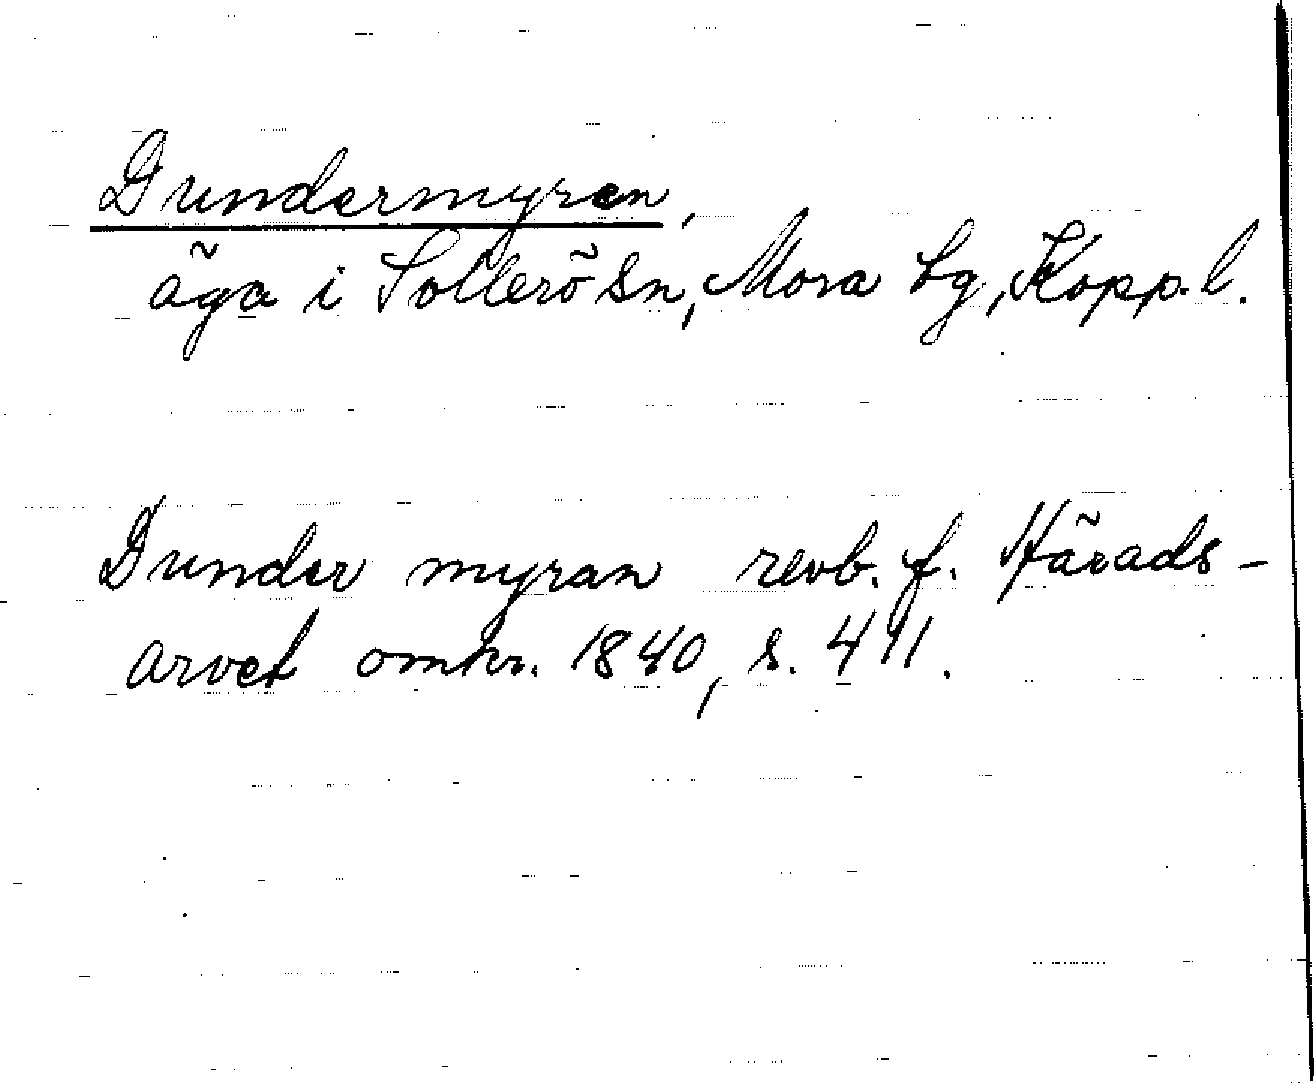 Dundermyren,
äga i Sollerö sn, Mora tg, Kopp. l.
Dunder myran revb. f. Härads-
arvet omkr. 1840, s. 411.